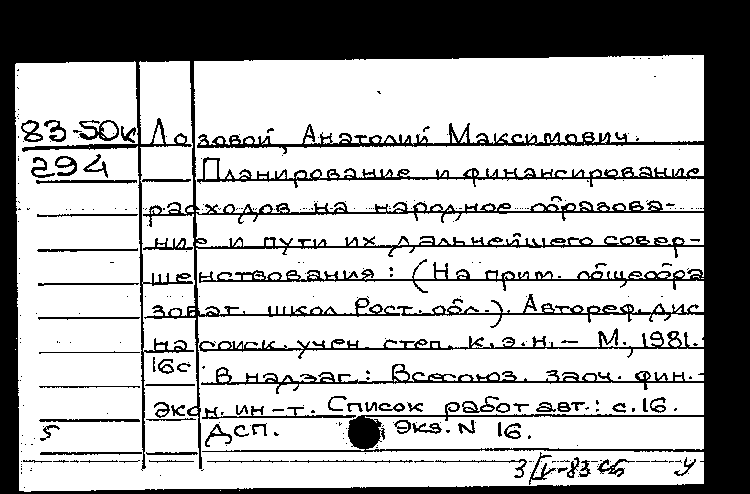 83-50к Лозовой, Анатолий Максимович.
294 Планирование и финансирование
расходов на народное образова-
ние и пути их дальнейшего совер-
шенствования : (На прим. общеобра
зоват. школ Рост. обл.). Автореф. дис
на соиск. учен. степ. к. э. н. – М., 1981. -
16с В надзаг.: Всесоюз. заоч. фин.-
экон. ин-т. Список работ авт.: с. 16.
5 ДСП. Экз. N 16.
3/IV-83 сб У